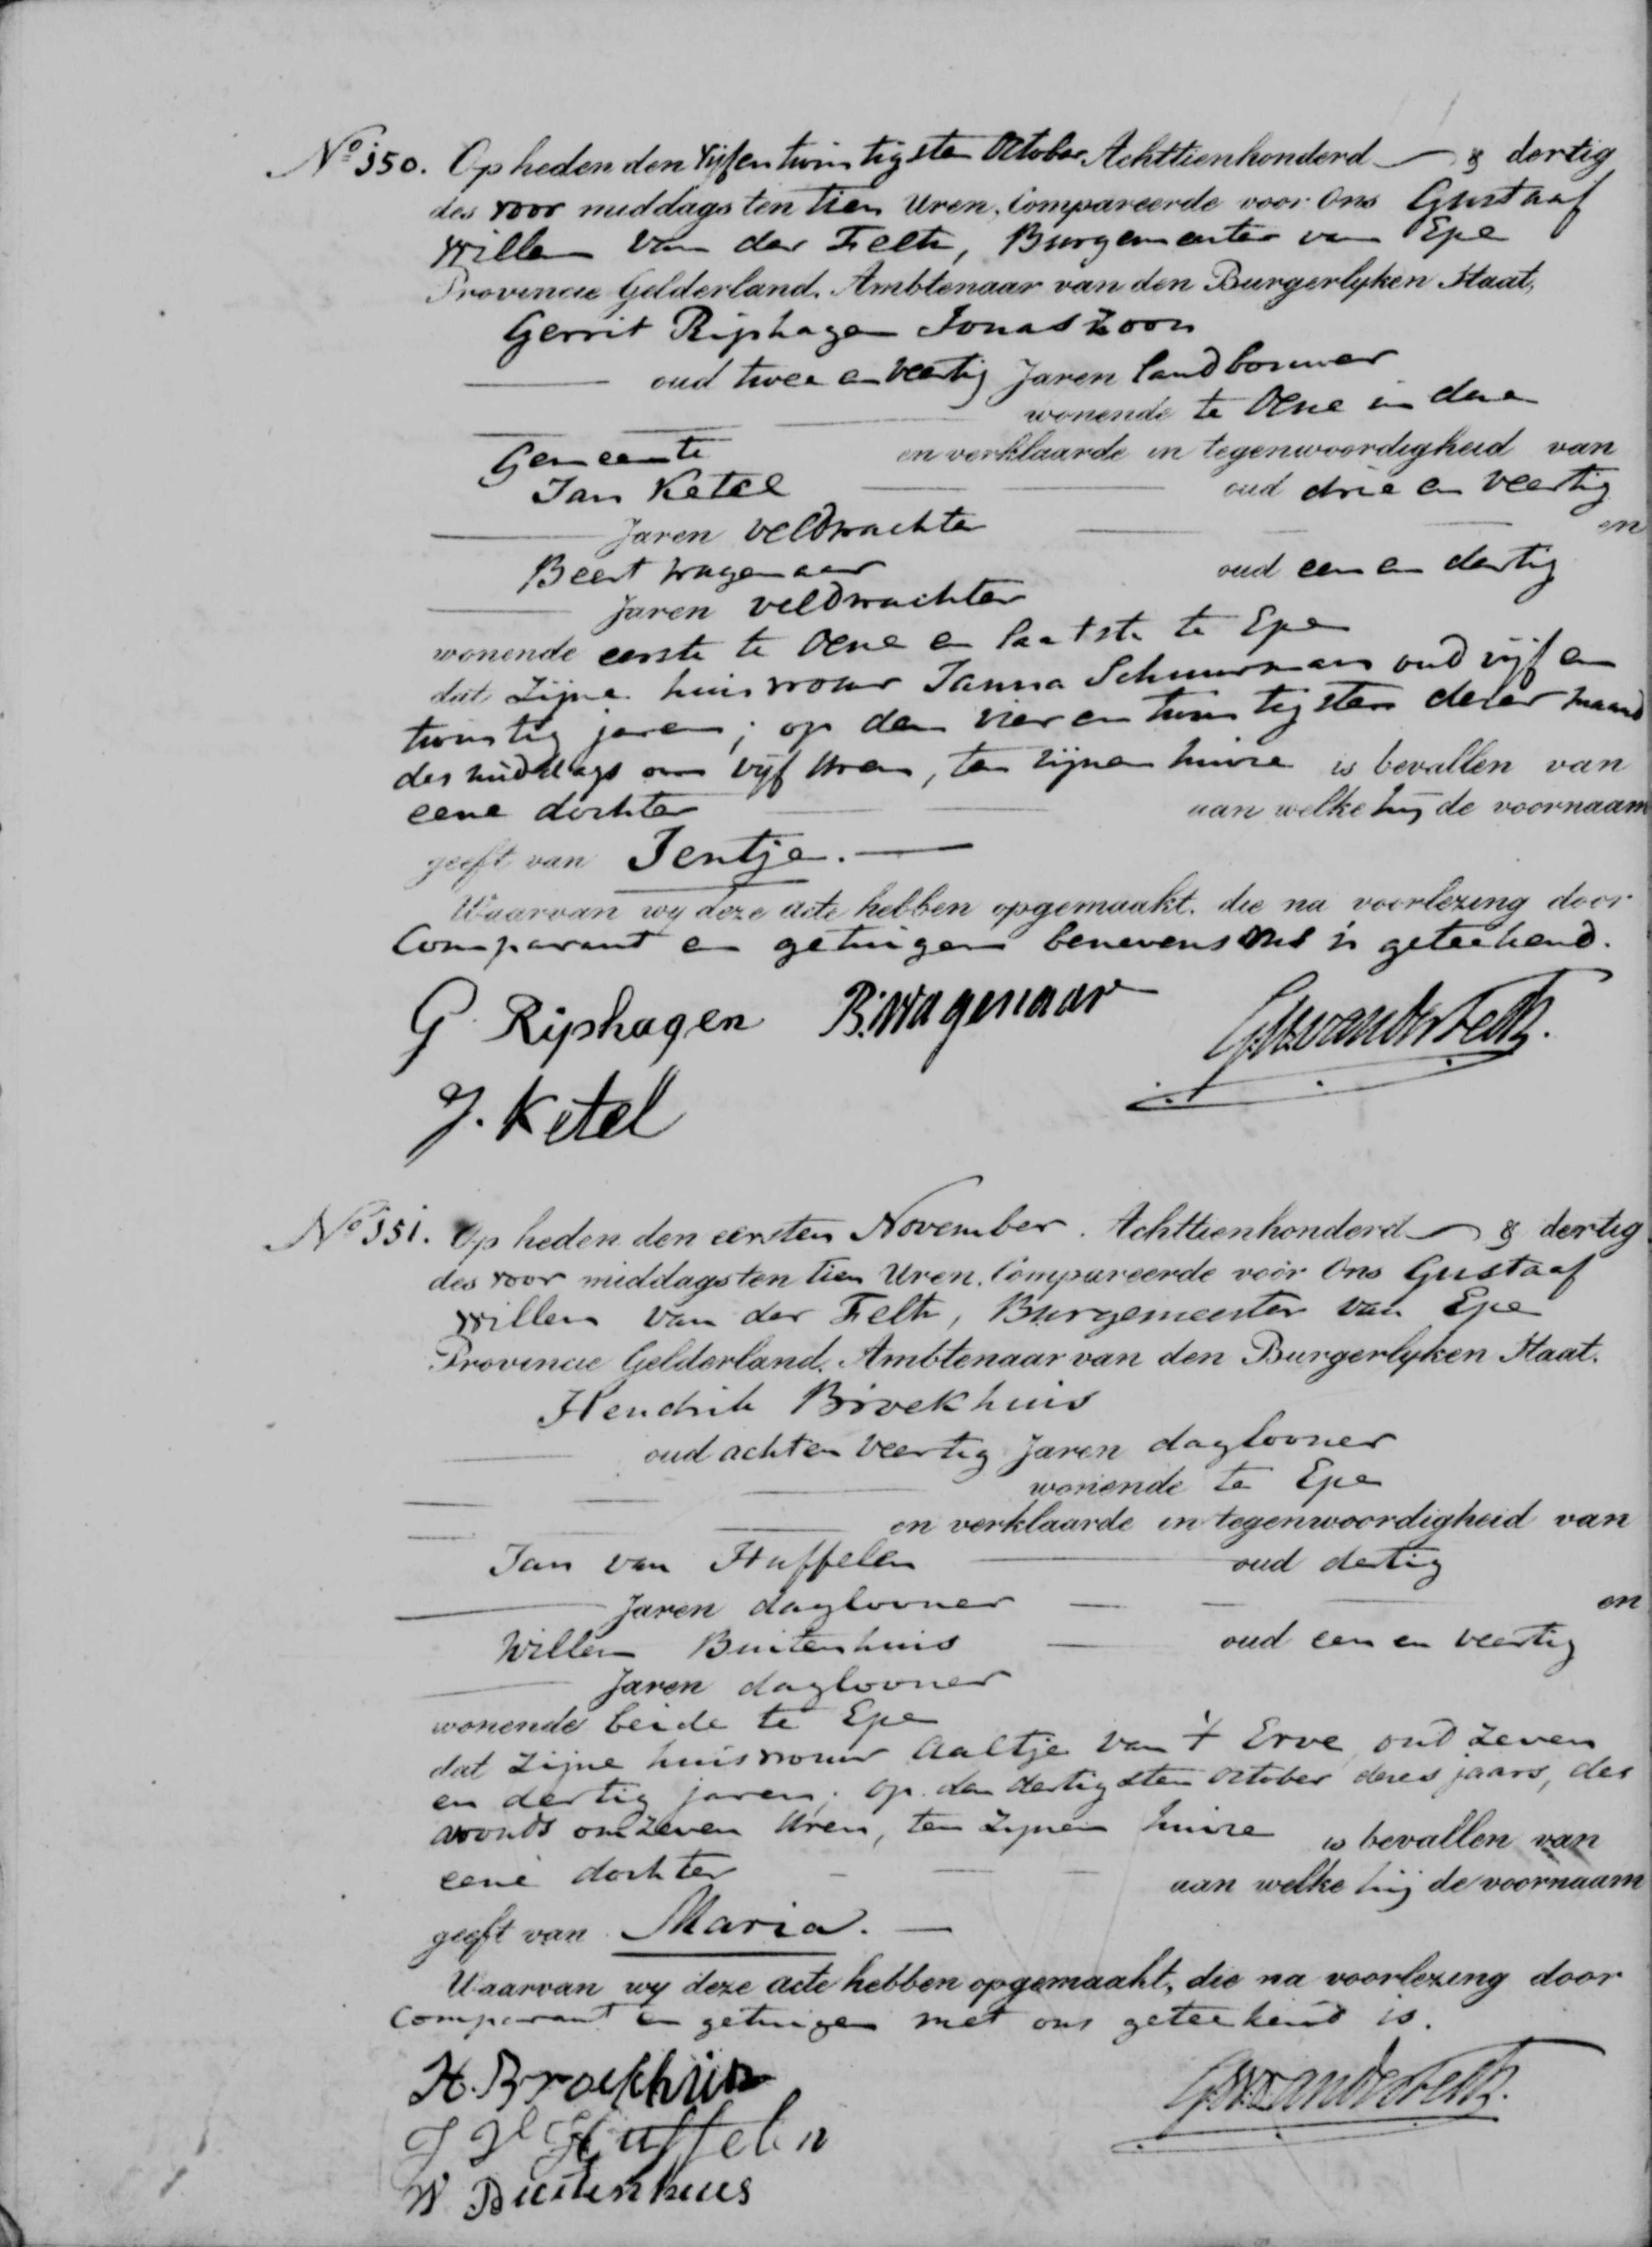 No 150. Op heden den vijfentwintigsten October Achttienhonderd — & dertig
des voor middags ten tien Uren, Compareerde voor Ons Gustaaf
Willem van der Feltz, Burgemeester van Epe
Provincie Gelderland, Ambtenaar van den Burgerlyken Staat,
Gerrit Riphagen Jonaszoon
oud twee en veertig Jaren landbouwer
wonende te Oene in deze
Gemeente en verklaarde in tegenwoordigheid van
Jan Ketel oud drie en veertig
Jaren veldwachter en
Beert Wagenaar oud een en dertig
Jaren veldwachter
wonende eerste te Oene en laatste te Epe
dat zijne huisvrouw Janna Schuurman oud vijf en
twintig jaren; op den vier en twintigsten dezer maand
des middags om vijf Uren, ten zijnen huize is bevallen van
eene dochter aan welke hij de voornaam
geeft van Jentje.
Waarvan wy deze acte hebben opgemaakt, die na voorlezing door
Comparant en getuigen benevens ons is geteekend.
G Riphagen B. Wagenaar GW van der Feltz.
J. Ketel
No 151. Op heden den eersten November Achttienhonderd — & dertig
des voor middags ten tien Uren, Compareerde voor Ons Gustaaf
Willem van der Feltz, Burgemeester van Epe
Provincie Gelderland, Ambtenaar van den Burgerlyken Staat.
Hendrik Broekhuis
oud achten veertig Jaren daglooner
wonende te Epe
en verklaarde in tegenwoordigheid van
Jan van Huffelen oud dertig
Jaren daglooner en
Willem Buitenhuis oud een en veertig
Jaren daglooner
wonende beide te Epe
dat zijne huisvrouw Aaltje van 't Erve oud zeven
en dertig jaren; op den dertigsten October dezes jaars, des
avonds om zeven Uren, ten zijnen huize is bevallen van
eene dochter aan welke hij de voornaam
geeft van Maria.
Waarvan wy deze acte hebben opgemaakt, die na voorlezing door
Comparant en getuigen met ons geteekend is.
H. Broekhuis GW van der Feltz.
J V Huffelen
W Buitenhuis